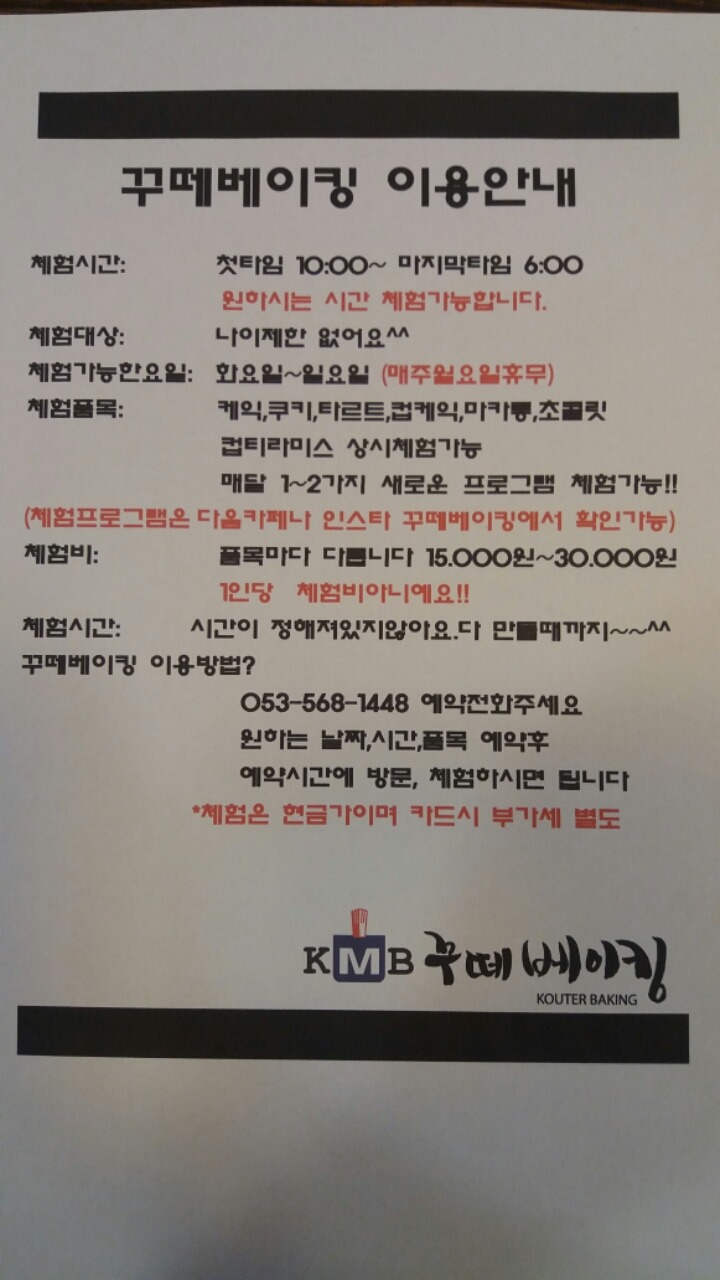 꾸떼베이킹 이용안내
체험시간: 첫타임 10:00~ 마지막타임 6:00
원하시는 시간 체험가능합니다.
체험대상: 나이제한 없어요^^
체험가능한요일: 화요일~일요일 (매주월요일휴무)
체험품목: 케익,쿠키,타르트,컵케익,마카롱,초콜릿
컵티라미스 상시체험가능
매달 1~2가지 새로운 프로그램 체험가능!!
(체험프로그램은 다음카페나 인스타 꾸떼베이킹에서 확인가능)
체험비: 품목마다 다릅니다 15.000원~30.000원
1인당 체험비아니예요!!
체험시간: 시간이 정해져있지않아요.다 만들때까지~~^^
꾸떼베이킹 이용방법?
053-568-1448 예약전화주세요
원하는 날짜,시간,품목 예약후
예약시간에 방문, 체험하시면 됩니다
*체험은 현금가이며 카드시 부가세 별도
KMB 꾸떼베이킹
KOUTER BAKING